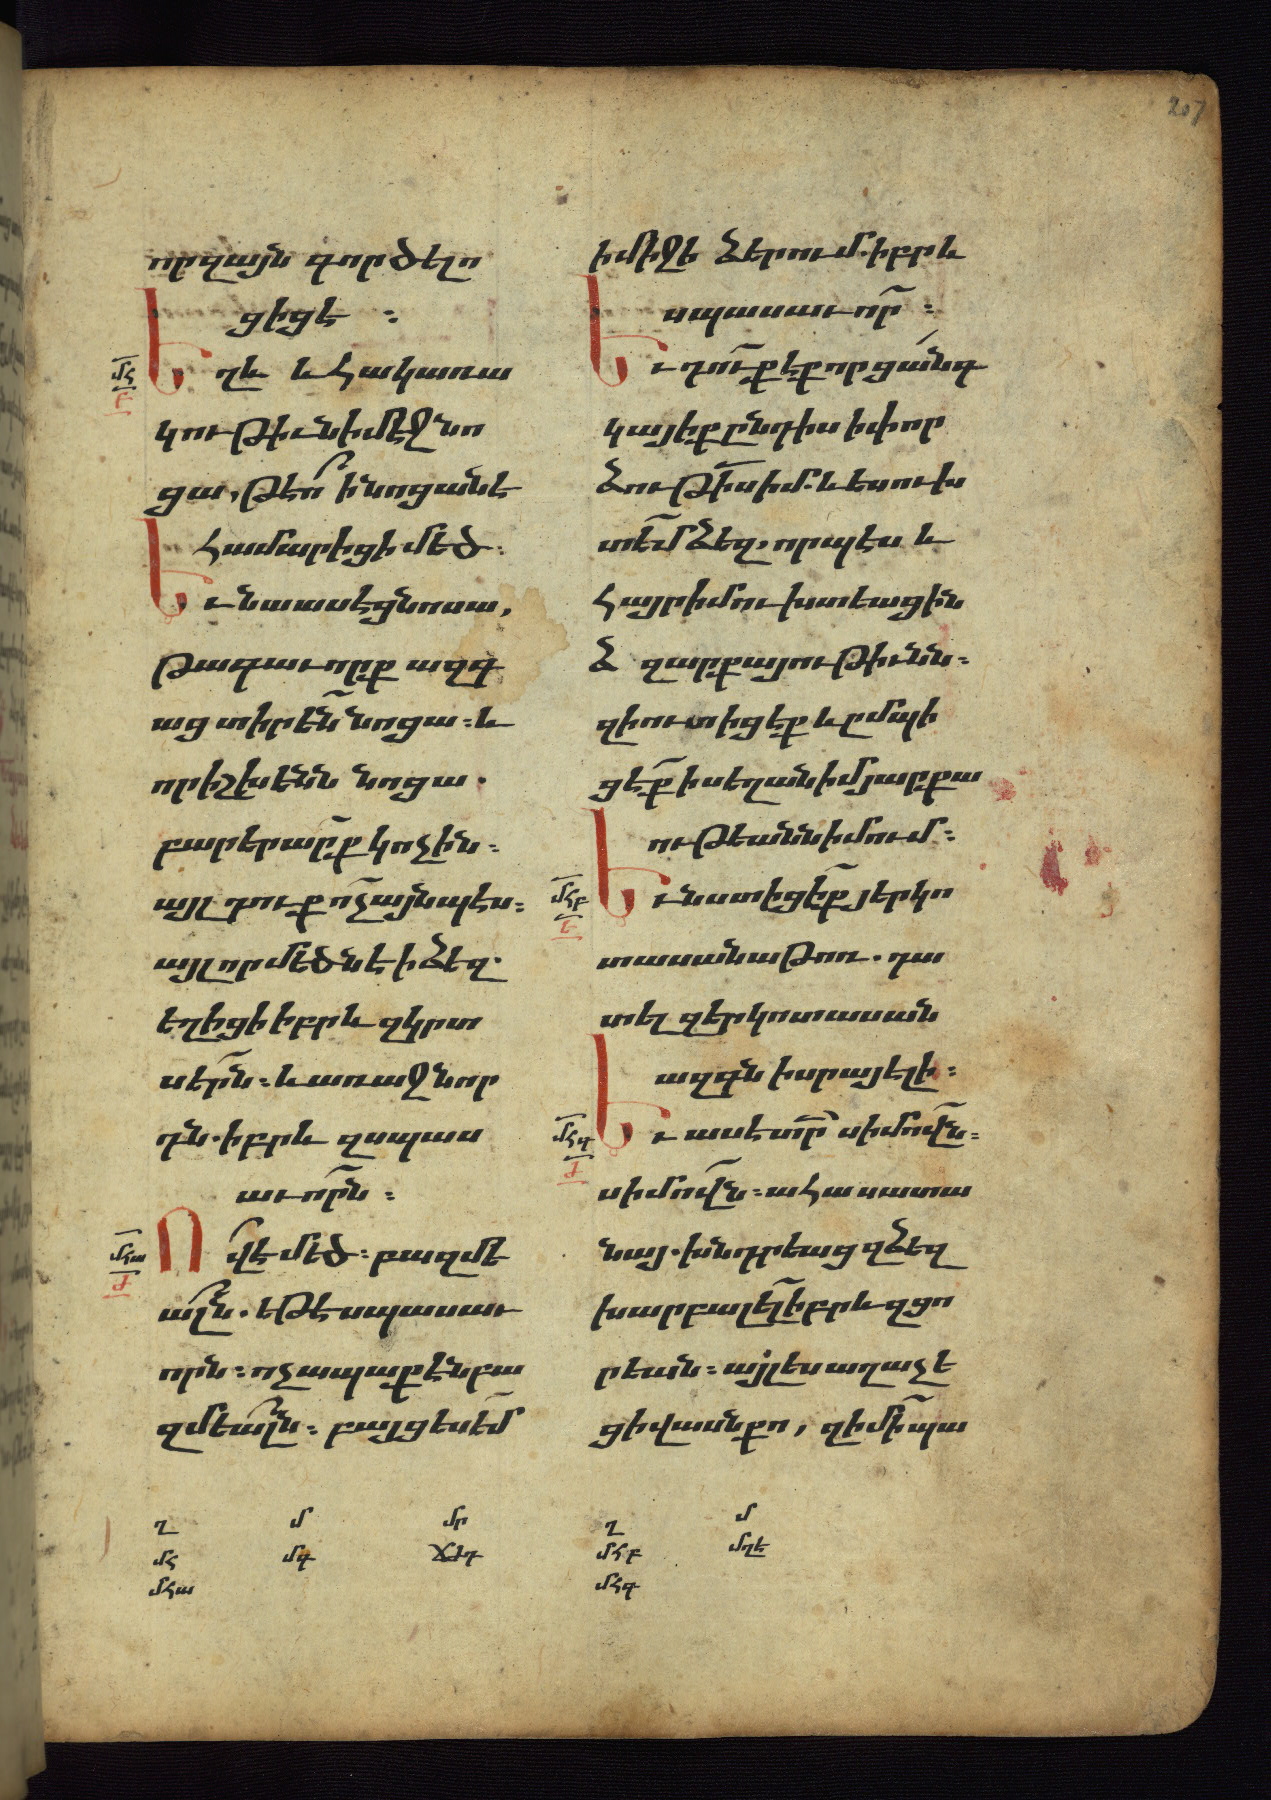 207
որզայն գործելո
ցիցէ ։
Եղև և հակառա
կութիւն ի մէջ նո
ցա, թէո՞ ի նոցանէ
համարիցի մեծ։
Եւ նա ասէ ցնոսա,
թագաւորք ազգ
աց տիրեն նոցա։ և
որ իշխենն նոցա.
բարերարք կոչին։
այլ դուք ոչ այնպէս։
այլ որ մեծն է ի ձեզ.
եղիցի իբրև զկրտ
սերն։ և առաջնոր
դն. իբրև զսպաս
աւորն։
Ո վ է մեծ։ բազմե
ալն. եթէ սպասաւ
որն։ ոչ ապաքէն բա
զմեալն։ բայց ես եմ
ի միջի ձերում. իբրև
սպասաւոր։
Եւ դուք էք որ ցանգ
կայիք ընդ իս ի փոր
ձութիս իմ. և ես ուխ
տեմ ձեզ, որպէս և
հայր իմ ուխտեաց ին
ձ զարքայութիւնն։
զի ուտիցէք և ըմպի
ցէք ի սեղան իմ յարքա
ութեանն իմում։
Եւ նստիցիք յերկո
տասան աթոռ. դա
տել զերկոտասան
ազգն իսրայելի։
Եւ ասէ տր սիմովն։
սիմովն։ ահա սատա
նայ. խնդրեաց զձեզ
խարբալել իբրև զցո
րեան։ այլ ես աղաչե
ցի վասն քո, զի մի պա
մհ
բ
մհա
ժ
մհբ
ե
մհգ
ժ
ղ մ մր
մհ մգ ՃԺԴ
մհա
ղ մ
մհբ մղե
մհգ